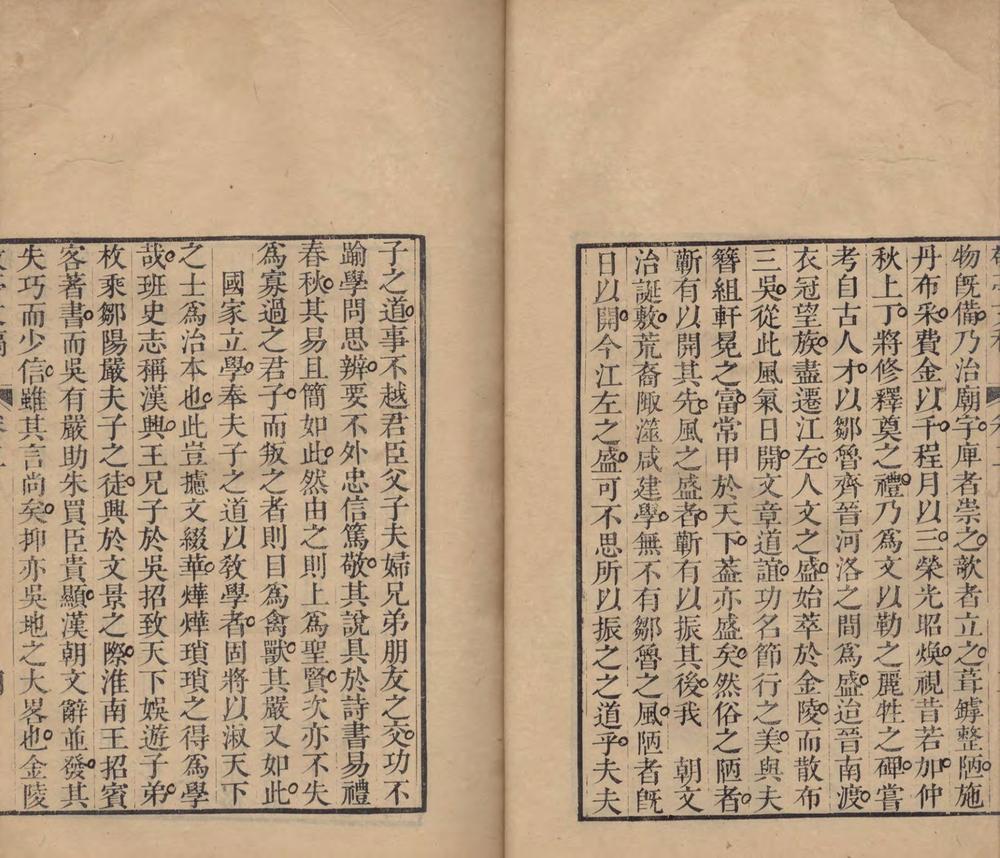 物旣備乃治廟宇庫者崇之歌者立之葺鎼整陋施
丹布采費金以千程月以三榮光昭煥視昔若加仲
秋上丁將修釋奠之禮乃爲文以勒之麗牲之碑嘗
考自古人才以鄒魯齊晉河洛之間爲盛迨晉南渡
衣冠望族盡遷江左人文之盛始萃於金陵而散布
三吳從此風氣日開文章道誼功名節行之美與夫
簪組軒冕之富常甲於天下葢亦盛矣然俗之陋者
蘄有以開其先風之盛者蘄有以振其後我　朝文
治誕敷荒裔陬澨咸建學無不有鄒魯之風陋者旣
日以開今江左之盛可不思所以振之之道乎夫夫
子之道事不越君臣父子夫婦兄弟朋友之交功不
踰學問思辨要不外忠信篤敬其說具於詩書易禮
春秋其易且簡如此然由之則上爲聖賢次亦不失
爲寡過之君子而叛之者則目爲禽獸其嚴又如此
國家立學奉夫子之道以敎學者固將以淑天下
之士爲治本也此豈攄文綴華燁燁瑣瑣之得爲學
哉班史志稱漢興王兄子於吳招致天下娛遊子弟
枚乘鄒陽嚴夫子之徒興於文景之際淮南王招賓
客著書而吳有嚴助朱買臣貴顯漢朝文辭並發其
失巧而少信雖其言尚矣抑亦吳地之大畧也金陵